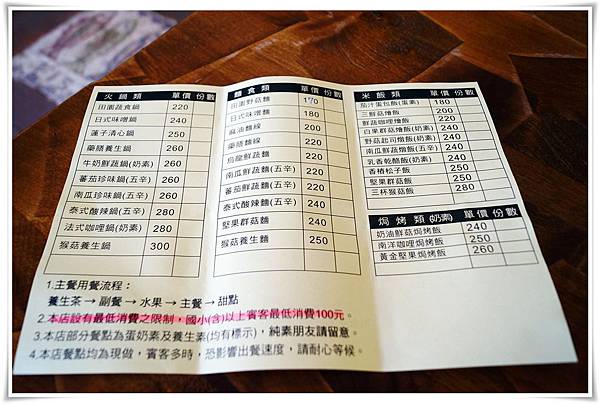 火鍋類 單價 份數
田園蔬食鍋 220
日式味噌鍋 240
蓮子清心鍋 250
藥膳養生鍋 260
牛奶鮮蔬鍋(奶素) 260
蕃茄珍味鍋(五辛) 260
南瓜珍味鍋(五辛) 260
泰式酸辣鍋(五辛) 280
法式咖哩鍋(奶素) 280
猴菇養生鍋 300
麵食類 單價 份數
田園野菇麵 170
日式味噌麵 180
麻油麵線 200
藥膳麵線 220
烏龍鮮蔬麵 220
南瓜鮮蔬麵(五辛) 220
蕃茄鮮蔬麵(五辛) 220
泰式酸辣麵(五辛) 240
堅果群菇麵 240
猴菇養生麵 250
米飯類 單價 份數
茄汁蛋包飯(蛋素) 180
三鮮菇燴飯 200
鮮蔬咖哩燴飯 220
白果群菇燴飯(奶素) 240
野菇起司燉飯(奶素) 240
南瓜鮮蔬燉飯(五辛) 240
乳香乾酪飯(奶素) 240
香椿松子飯 250
堅果群菇飯 250
三杯猴菇飯 280
焗烤類(奶素) 單價 份數
奶油鮮菇焗烤飯 240
南洋咖哩焗烤飯 250
黃金堅果焗烤飯 260
1.主餐用餐流程：
養生茶→副餐→水果→主餐→甜點
2.本店設有最低消費之限制，國小(含)以上賓客最低消費100元。
3.本店部分餐點為蛋奶素及養生素(均有標示)，純素朋友請留意。
4.本店餐點均為現做，賓客多時，恐影響出餐速度，請耐心等候。